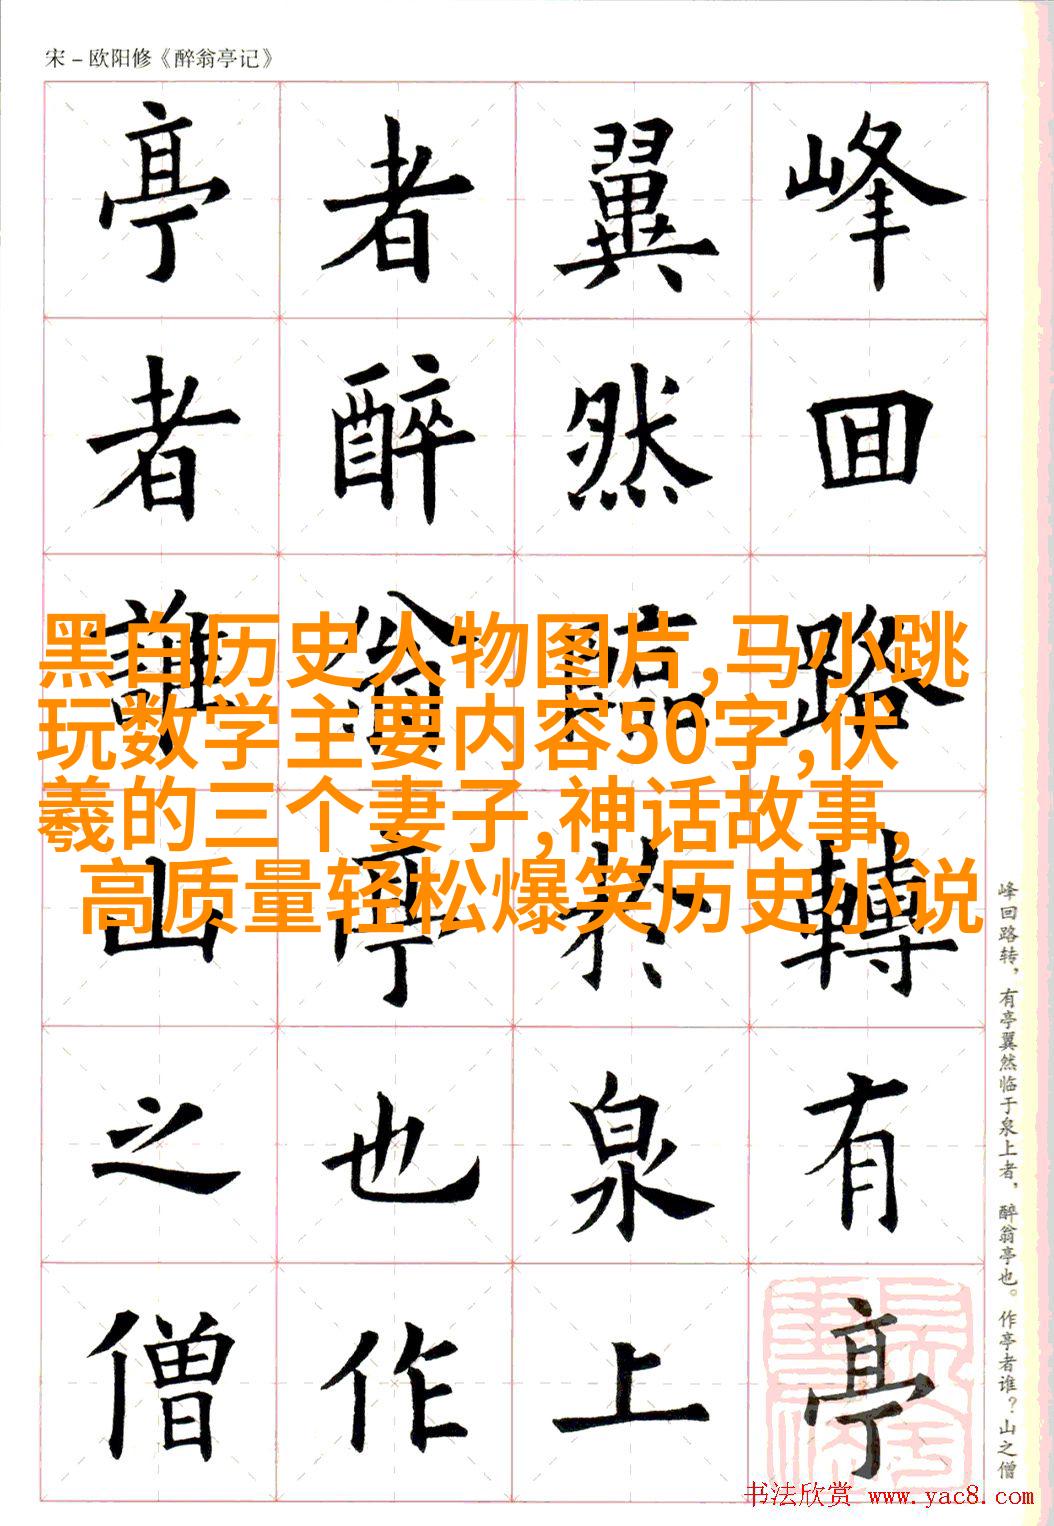 宋－欧阳修《醉翁亭记》
峰回路轉有亭
翼然臨於泉上
者醉翁亭也作
亭者誰山之僧
黑白历史人物图片,马小跳
玩数学主要内容50字,伏
羲的三个妻子,神话故事,
高质量轻松爆笑历史小说
峰回路转，有亭翼然临于泉上者，醉翁亭也。作亭者谁？山之僧
书法欣赏 www.yac8.com